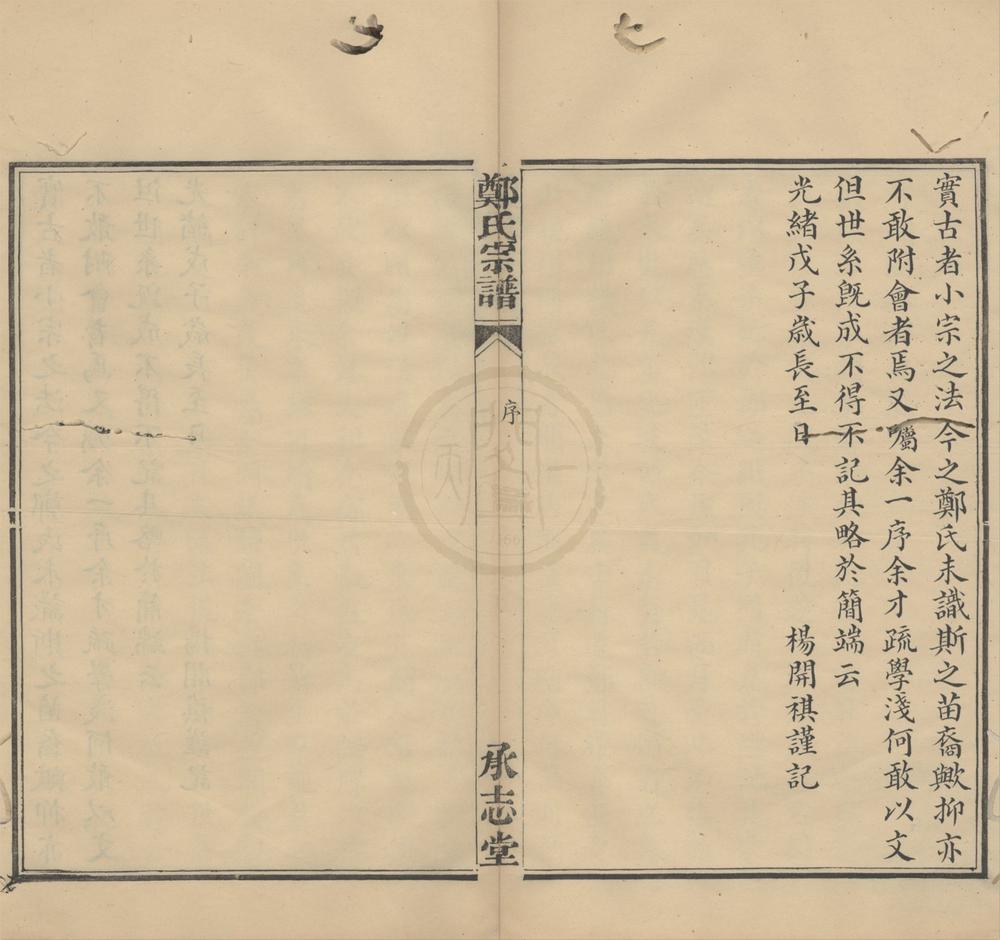 實古者小宗之法今之鄭氏未識斯之苗裔歟抑亦
不敢附會者焉又囑余一序余才疏學淺何敢以文
但世系旣成不得不記其略於簡端云
光緒戊子歲長至日 楊開祺謹記
鄭氏宗譜
序
承志堂